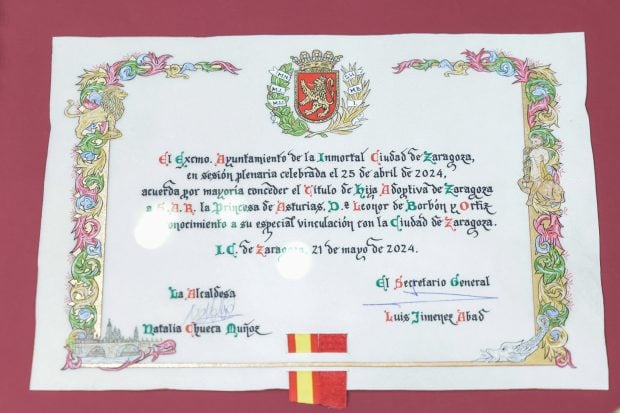 El Excmo. Ayuntamiento de la Inmortal Ciudad de Zaragoza,
en sesión plenaria celebrada el 25 de abril de 2024,
acuerda por mayoría conceder el Título de Hija Adoptiva de Zaragoza
a S.A.R. la Princesa de Asturias, D.ª Leonor de Borbón y Ortiz
conocimiento a su especial vinculación con la Ciudad de Zaragoza.
I.C. de Zaragoza, 21 de mayo de 2024.
La Alcaldesa
El Secretario General
Natalia Chueca Muñoz
Luis Jimenez Abad